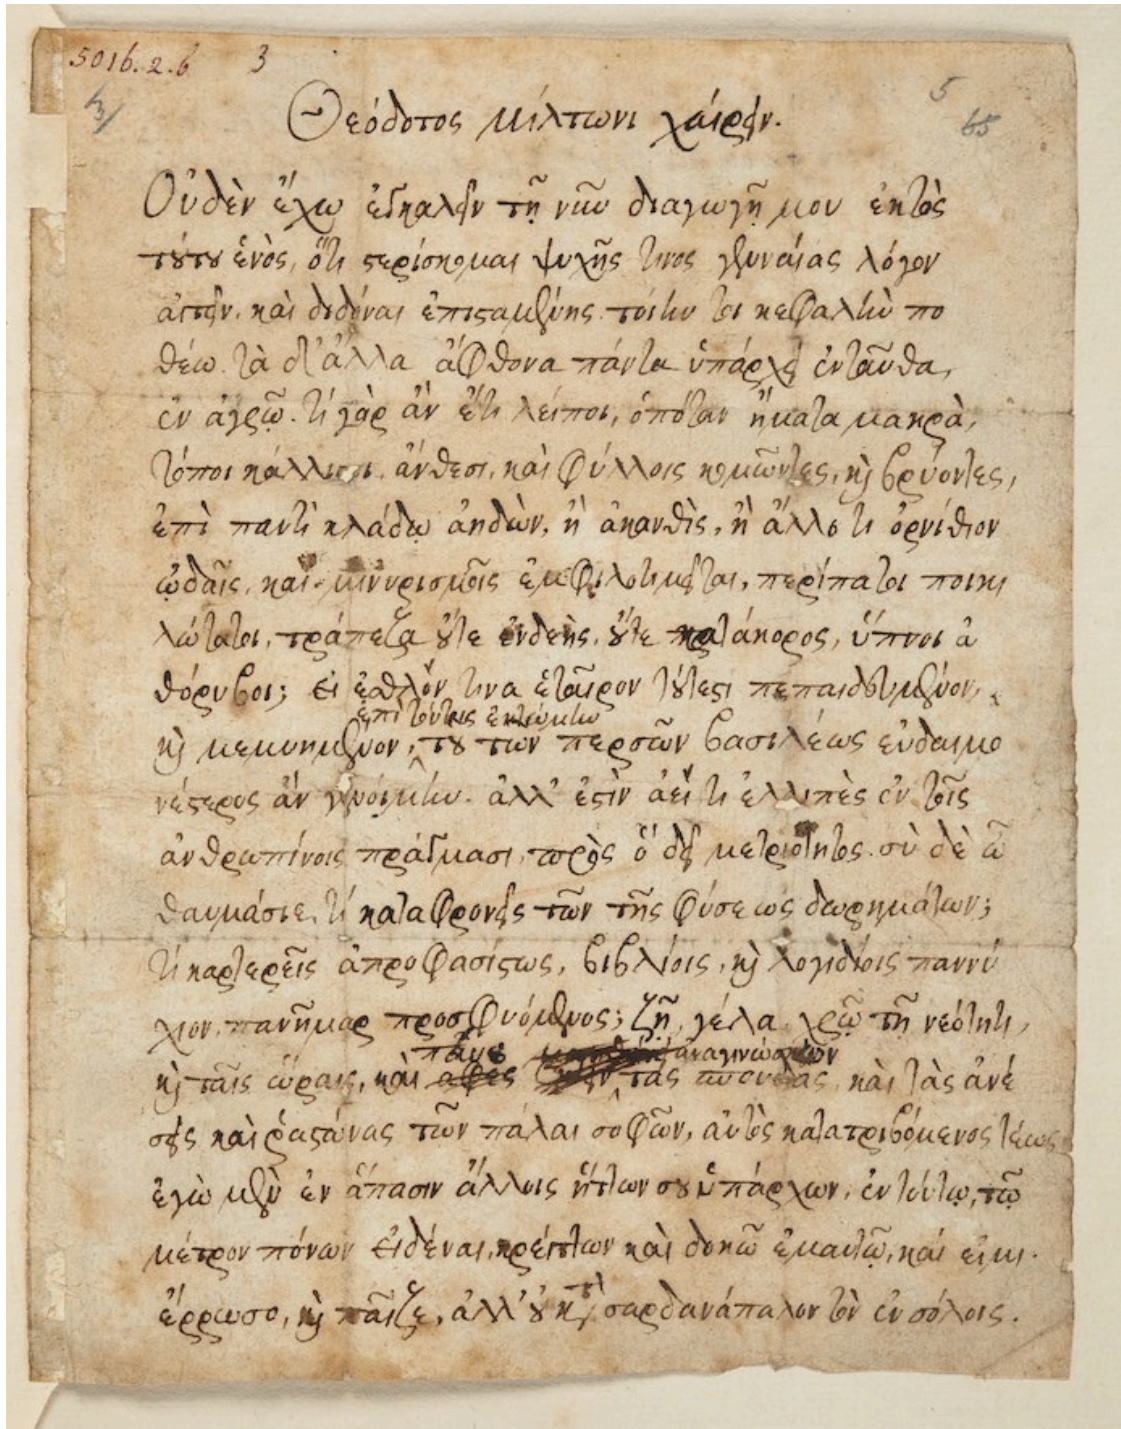 5016.2.b 3
3/ 5
65
Θεόδοτος Μίλτωνι χαίρειν.
Οὐδὲν ἔχω ἐγκαλεῖν τῇ νῦν διαγωγῇ μου ἐκτὸς
τούτου ἑνὸς, ὅτι στερίσκομαι ψυχῆς τινος γενναίας λόγον
αἰτεῖν, καὶ διδόναι ἐπισταμένης. τοίην τοι κεφαλὴν πο
θέω. τὰ δ' ἄλλα ἄφθονα πάντα ὑπάρχει ἐνταῦθα,
ἐν ἀγρῷ. τί γὰρ ἂν ἔτι λείποι, ὁπόταν ἤματα μακρὰ,
τόποι κάλλιστοι ἄνθεσι, καὶ φύλλοις κομῶντες, καὶ βρύοντες,
ἐπὶ παντὶ κλάδῳ ἀηδὼν, ἢ ἀκανθὶς, ἢ ἄλλο τι ὀρνίθιον
ᾠδαῖς, καὶ μινυρισμοῖς ἐμφιλοτιμεῖται, περίπατοι ποικι
λώτατοι, τράπεζα οὔτε ἐνδεὴς, οὔτε κατάκορος, ὕπνοι ἀ
θόρυβοι; εἰ ἐσθλόν τινα ἑταῖρον τούτεστι πεπαιδευμένον,
ἐπὶ τούτοις ἐκτώμην
καὶ μεμυημένον, του των περσῶν βασιλέως εὐδαιμο
νέστερος ἂν γενοίμην. ἀλλ' ἐστὶν ἀεί τι ἐλλιπὲς ἐν τοῖς
ἀνθρωπίνοις πράγμασι, πρὸς ὃ δεῖ μετριότητος. σὺ δὲ ὦ
θαυμάσιε, τί καταφρονεῖς τῶν τῆς φύσεως δωρημάτων;
τί καρτερεῖς ἀπροφασίστως, βιβλίοις, καὶ λογιδίοις παννύ
χιον, πανῆμαρ προσφυόμενος; ζῆ, γέλα, χρῶ τῇ νεότητι,
παύου ἀναγινώσκων
καὶ ταῖς ὥραις, καὶ τας σπουδὰς, καὶ τὰς ἀνέ
σεις καὶ ῥᾳστώνας τῶν πάλαι σοφῶν, αὐτὸς κατατριβόμενος τέως
ἐγὼ μὲν ἐν ἅπασιν ἄλλοις ἥττων σου ὑπάρχων, ἐν τούτῳ, τῷ
μέτρον πόνων εἰδέναι, κρείττων καὶ δοκῶ ἐμαυτῷ, καὶ εἰμι.
ἔρρωσο, καὶ παῖζε, ἀλλ' οὐ κατὰ σαρδανάπαλον τὸν ἐν σόλοις.